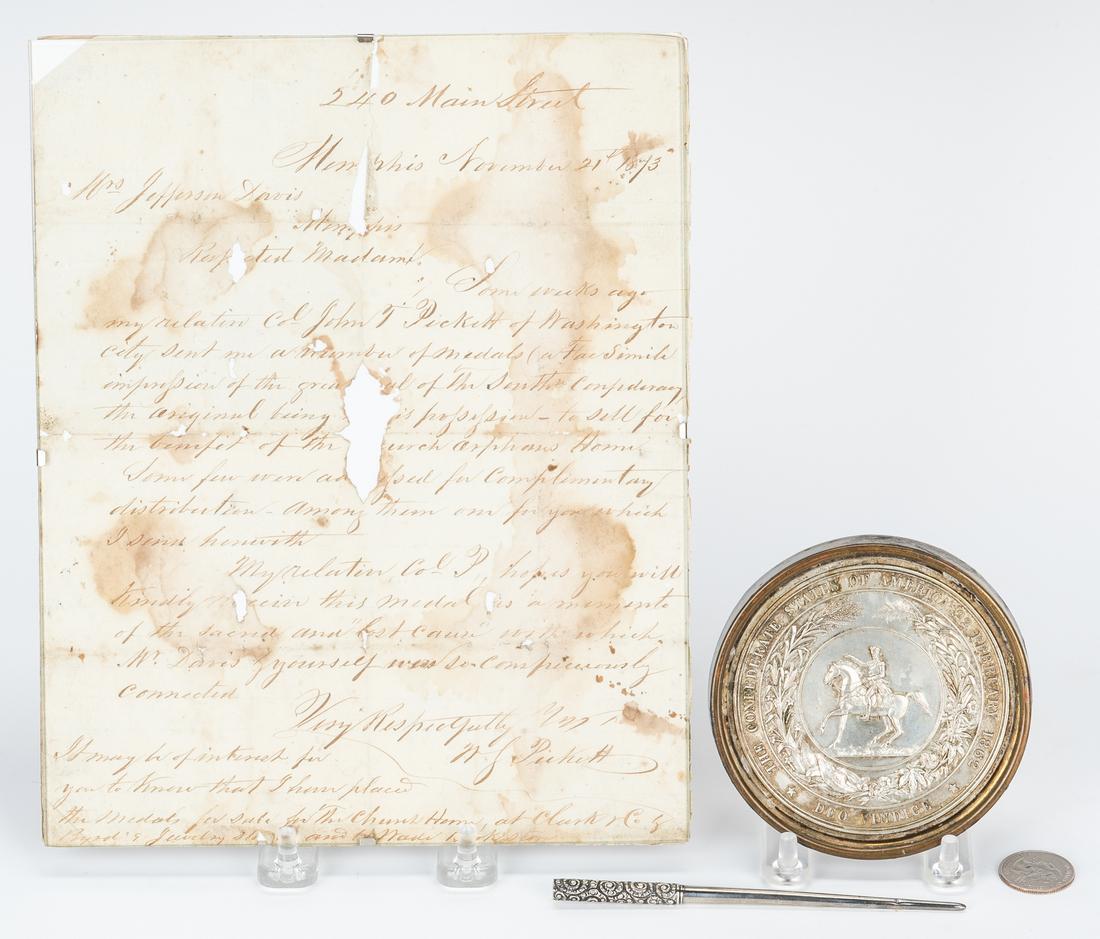 240 Main Street
Memphis November 21st 1873
Mrs Jefferson Davis
Memphis
Respected Madam
Some weeks ago
my relativ Col John T Pickett of Washington
city sent me a number of medals (a Fac Simile
impression of the great seal of the South Confederacy
the original being his possession - to sell for
the benefit of the Church Orphans Home
Some few were addressed for Complimentary
distribution - among them one for you which
I send herewith
My relativ, Col P, hopes you will
kindly receive this medal as a memento
of the sacred and "lost cause" with which
Mr Davis & yourself was so Conspicuously
Connected
Very Respectfully Yrs
W G Pickett
It may be of interest for
you to Know that I have placed
the medals for sale for the Church Home at Clark & Co &
Byrd's Jewelry and
THE CONFEDERATE STATES OF AMERICA: 22 FEBRUARY 1862
★ DEO VINDICE ★